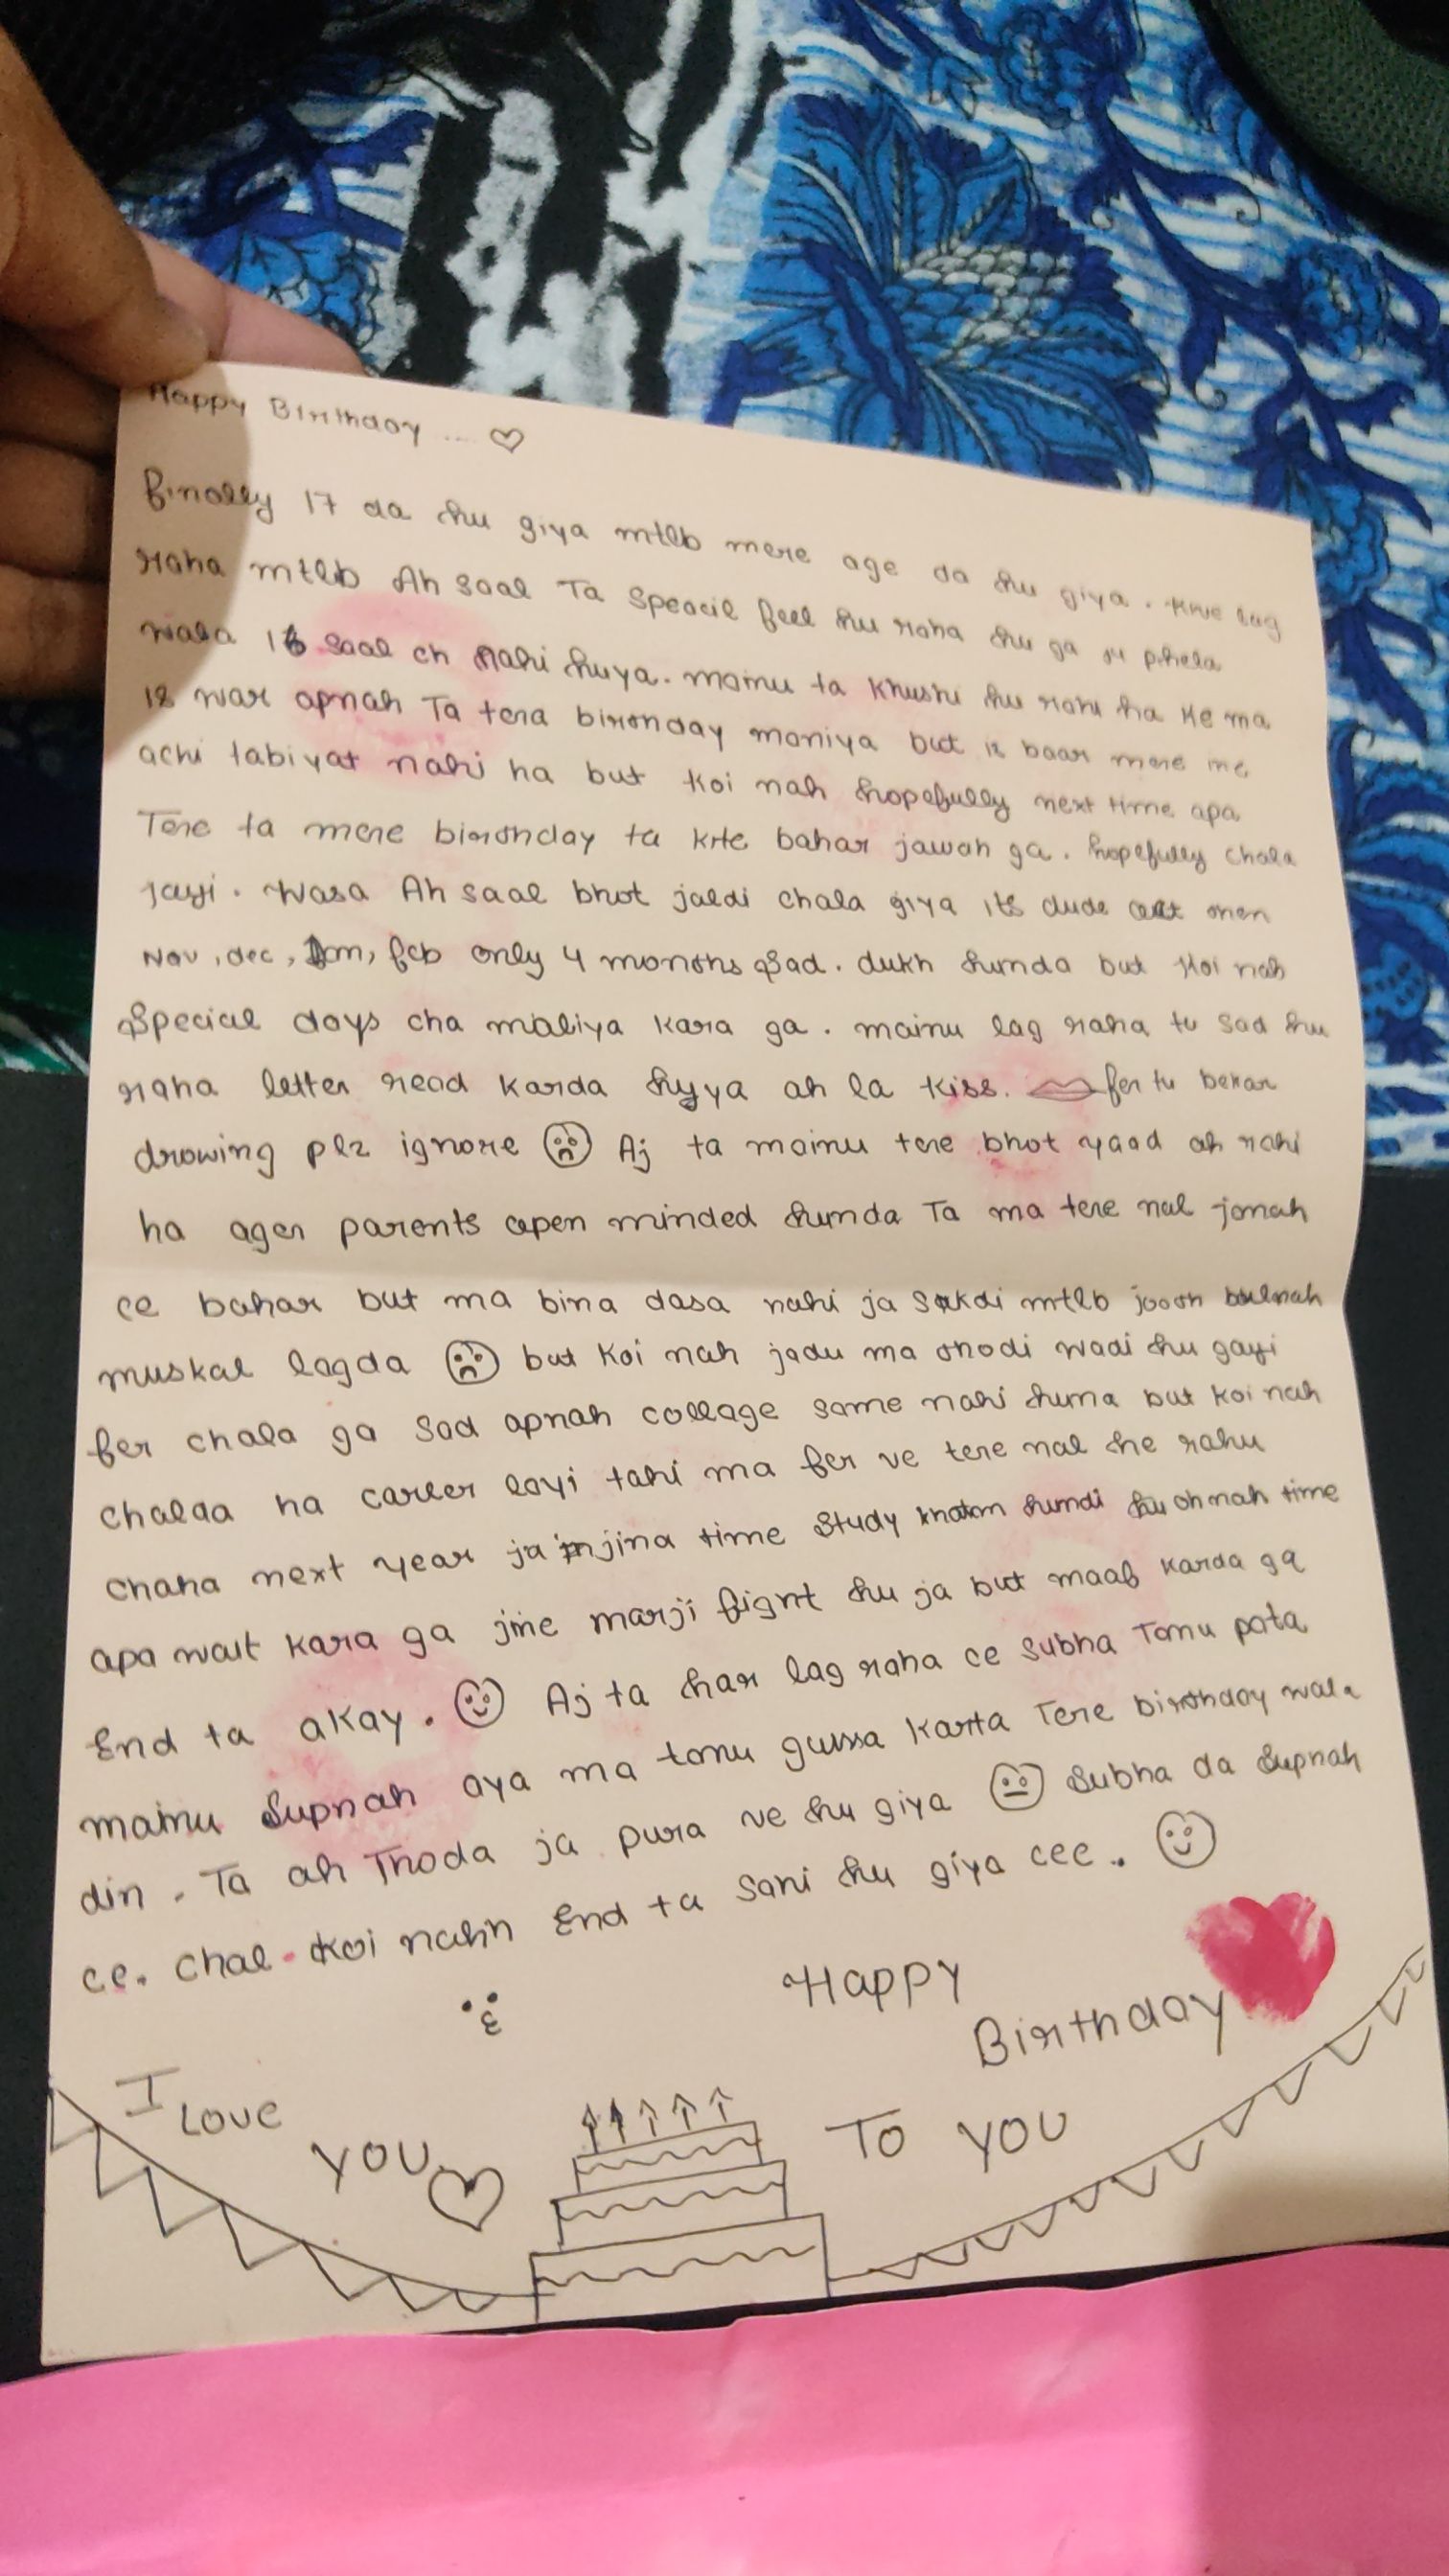 Happy Birthday ... ♡
finally 17 da hu giya mtlb mere age da hu giya. kive lag
raha mtlb Ah saal Ta speacil feel hu raha hu ga je phela
wala 16 saal ch nahi huya. mainu ta khushi hu rahi ha ke ma
18 war apnah Ta tera birthday maniya but is baar mere me
achi tabiyat nahi ha but koi nah hopefully next time apa
Tere ta mere birthday ta kite bahar jawah ga. hopefully chala
jayi. Wasa Ah saal bhot jaldi chala giya its dude
Nov, dec, Jan, feb only 4 months Sad. dukh hunda but koi nah
Special days cha maliya kara ga. mainu lag raha tu sad hu
raha letter read karda huyya ah la kiss. fer tu bekar
drowing plz ignore ☹ Aj ta mainu tere bhot yaad ah rahi
ha ager parents open minded hunda Ta ma tere nal jonah
ce bahar but ma bina dasa nahi ja sakdi mtlb jooth bulnah
muskal lagda ☹ but koi nah jadu ma thodi wadi hu gayi
fer chala ga sad apnah collage same nahi huna but koi nah
chalda ha career layi tahi ma fer ve tere nal he rahu
chaha next year ja injina time study khatam hundi hu ohnah time
apa wait kara ga jine marji fight hu ja but maaf karda ga
End ta akay. ☺ Aj ta har lag raha ce subha Tonu pata
mainu Supnah aya ma tonu gussa karta Tere birthday wala
din. Ta ah Thoda ja pura ve hu giya 😐 Subha da Supnah
ce. Chal koi nahn End ta sahi hu giya cee. ☺
Happy
Birthday
I
Love
YOU ♡
TO YOU